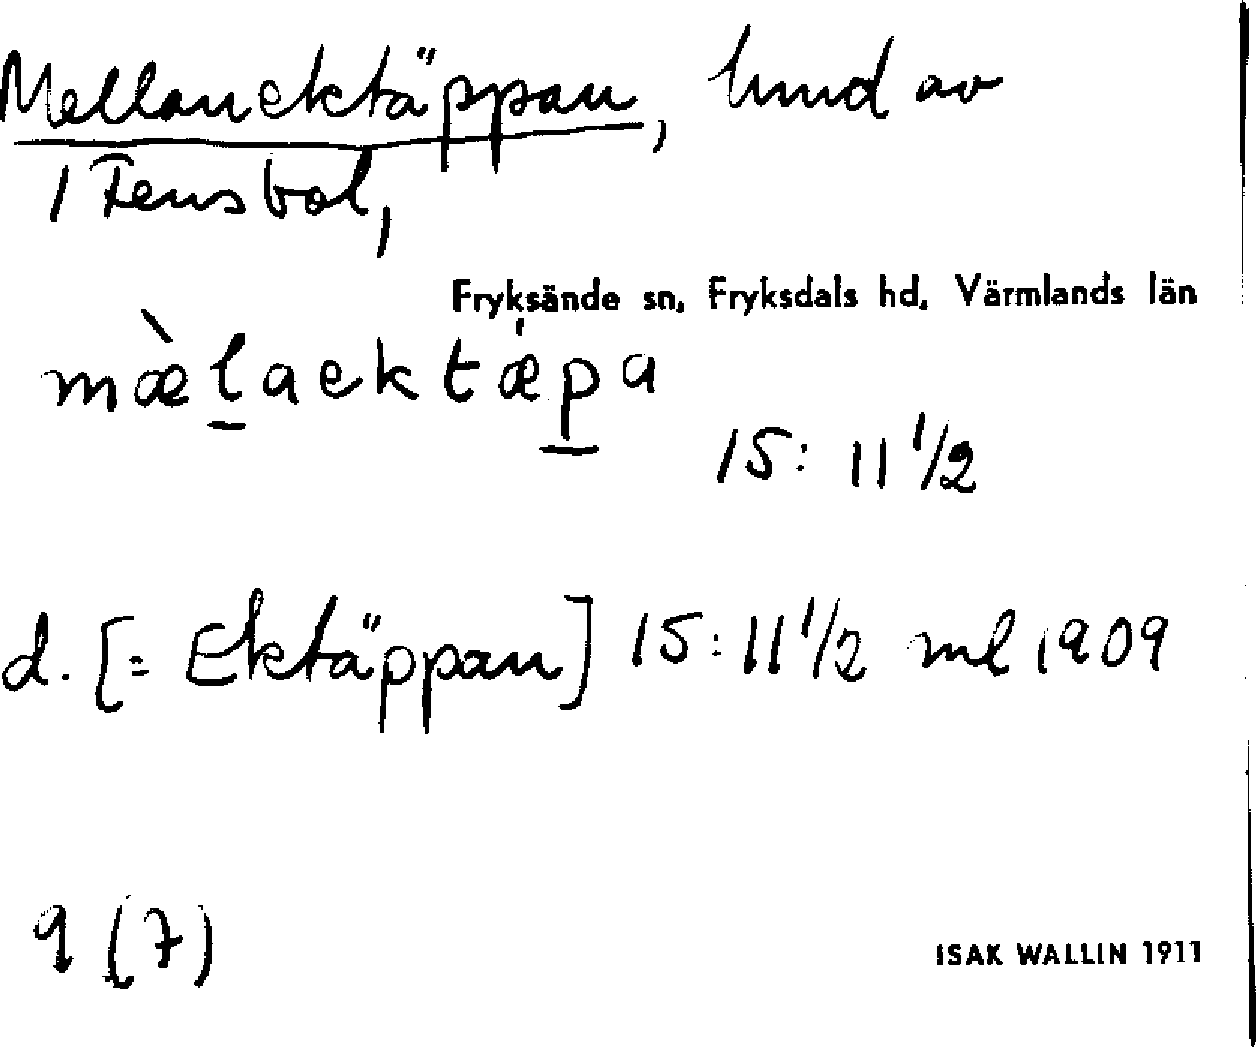 Mellanektäppan, hmd av
1 Fensbol,
Fryksände sn, Fryksdals hd, Värmlands län
mæ̀laektǽpa
15: 11 1/2
d. [= Ektäppan] 15:11 1/2 ml 1909
9 (7)
ISAK WALLIN 1911